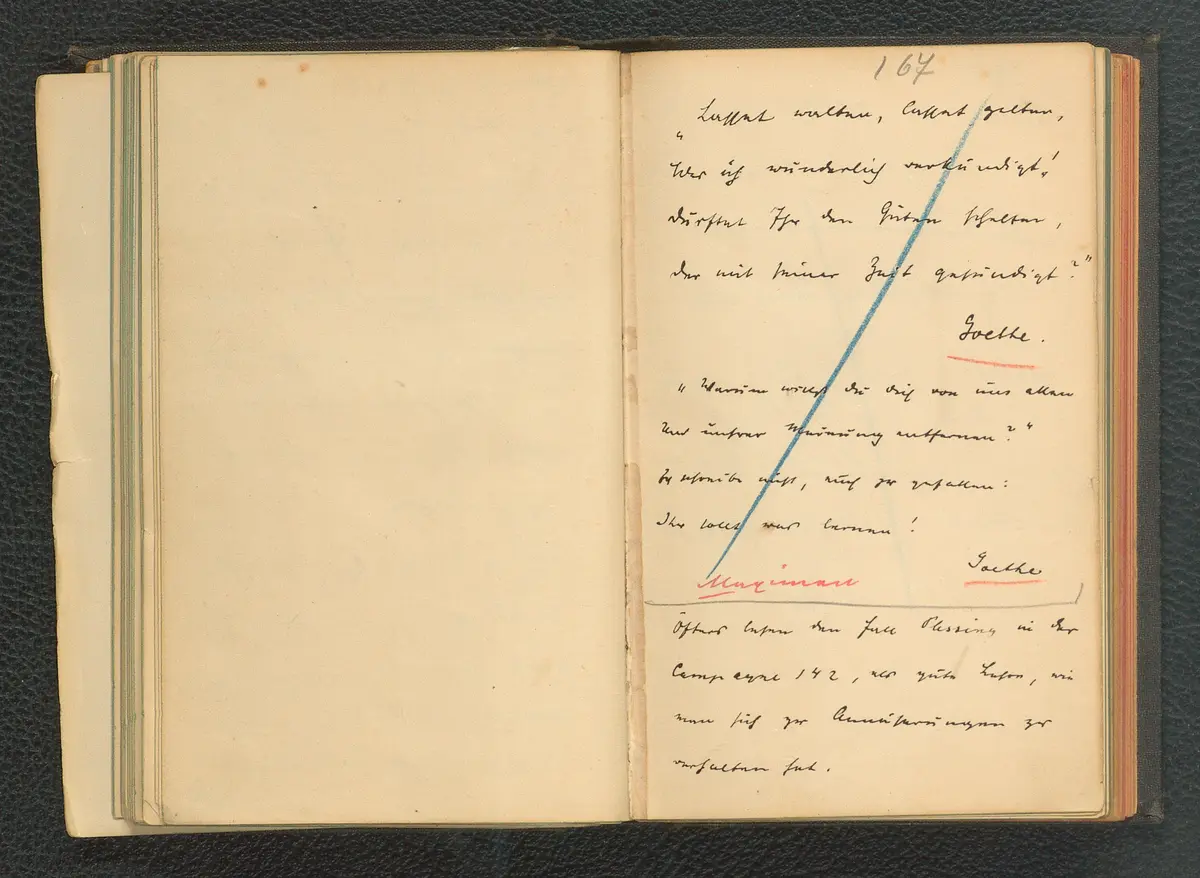 167
„Lasset walten, lasset gelten,
Was ich wunderlich verkündigt!
Dürftet Ihr den Guten schelten,
Der mit seiner Zeit gesündigt?"
Goethe.
„Warum willst du dich von uns allen
Und unsrer Meinung entfernen?"
Ich schreibe nicht, euch zu gefallen:
Ihr sollt was lernen!
Goethe
Maximen
Öfters lesen den Fall Plessing in der
Campagne 142, als gute Lehre, wie
man sich zu Annäherungen zu
verhalten hat.